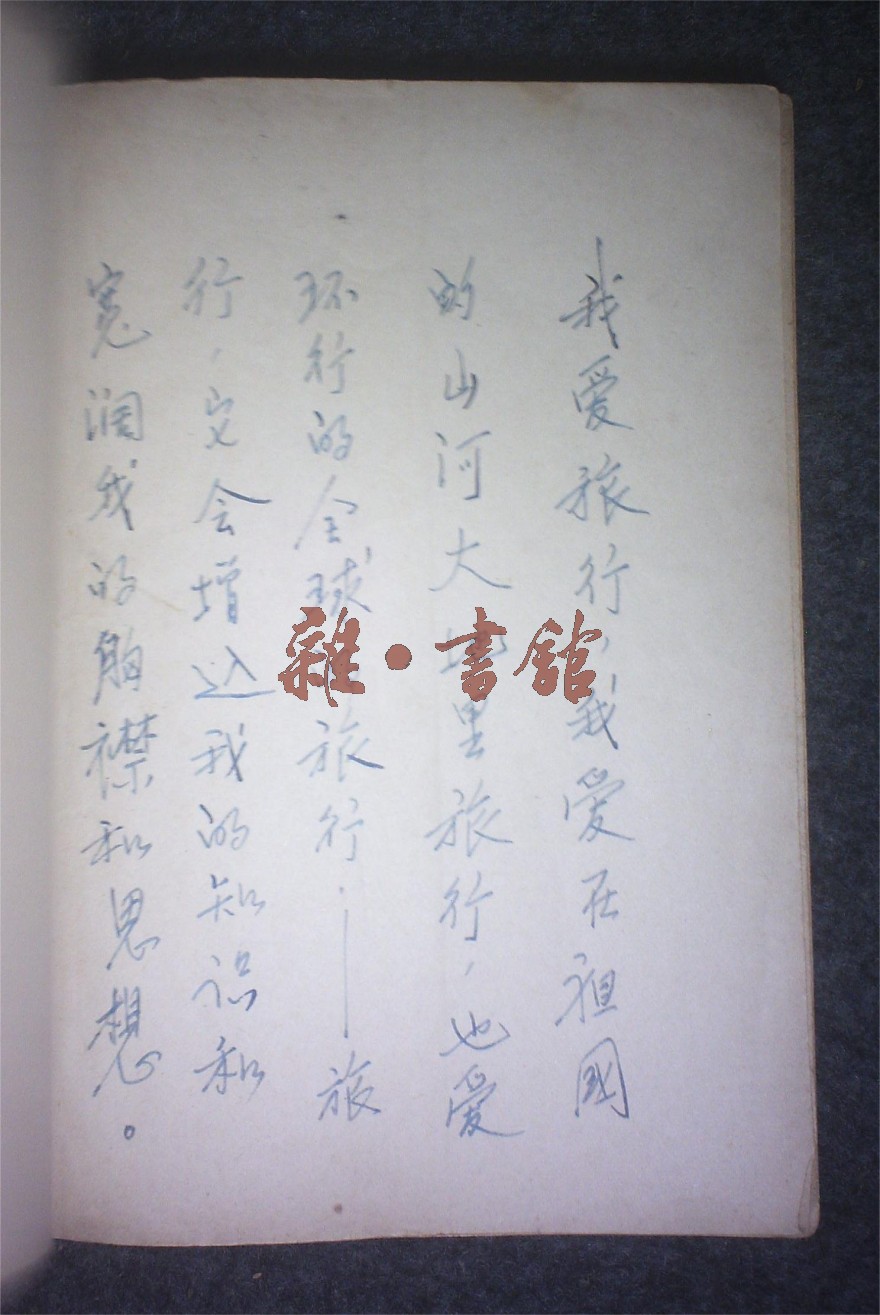 我爱旅行，我爱在祖國
的山河大地里旅行，也爱
环行的全球的旅行；——旅
行，它会增込我的知识和
宽润我的胸襟和思想。
雜·書館